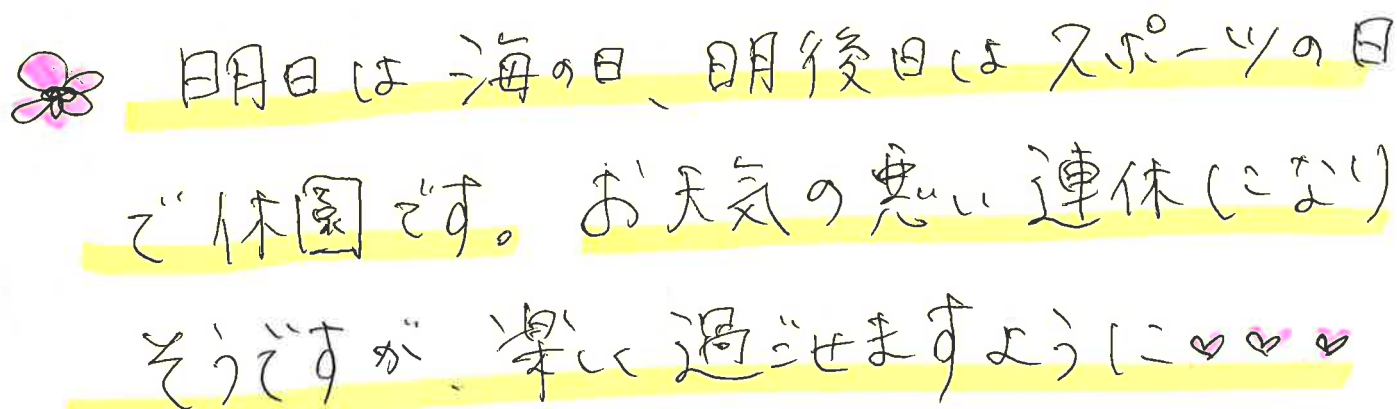 明日は海の日、明後日はスポーツの日
で休園です。お天気の悪い連休になり
そうですが、楽しく過ごせますように♡♡♡